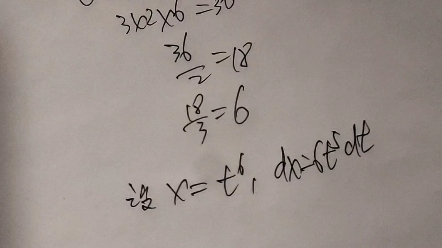 3×2×6=36
36/2=18
18/3=6
设 x=t⁶, dx=6t⁵dt